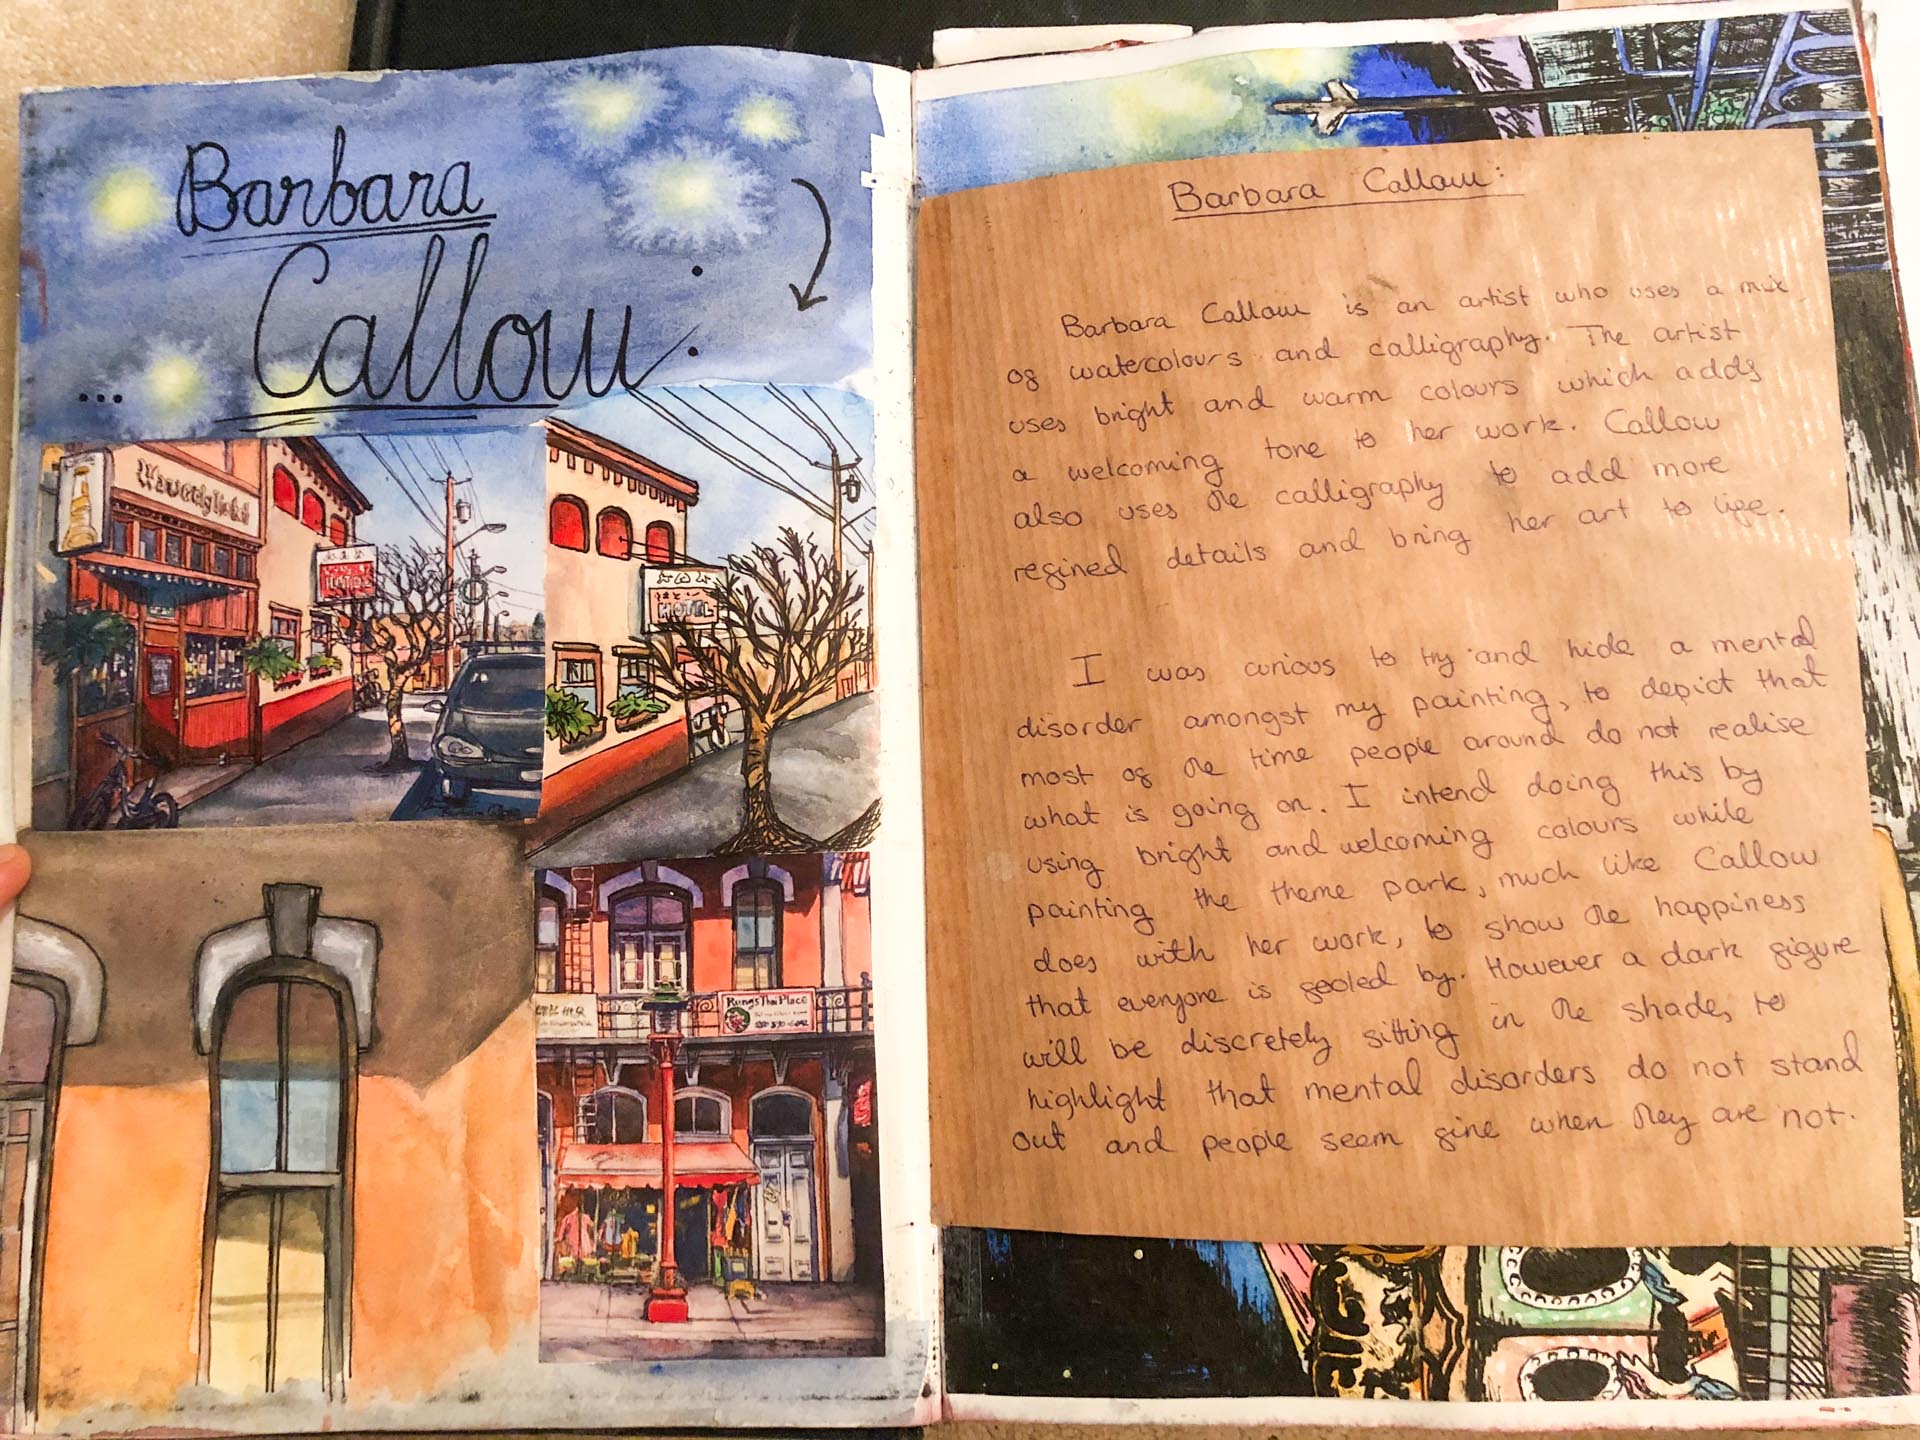 Barbara
Callow:
...
HOTEL
HOTEL
Rungs Thai Place
Barbara Callow:
Barbara Callow is an artist who uses a mix
of watercolours and calligraphy. The artist
uses bright and warm colours which adds
a welcoming tone to her work. Callow
also uses the calligraphy to add more
refined details and bring her art to life.
I was curious to try and hide a mental
disorder amongst my painting, to depict that
most of the time people around do not realise
what is going on. I intend doing this by
using bright and welcoming colours while
painting the theme park, much like Callow
does with her work, to show the happiness
that everyone is fooled by. However a dark figure
will be discretely sitting in the shade, to
highlight that mental disorders do not stand
out and people seem fine when they are not.